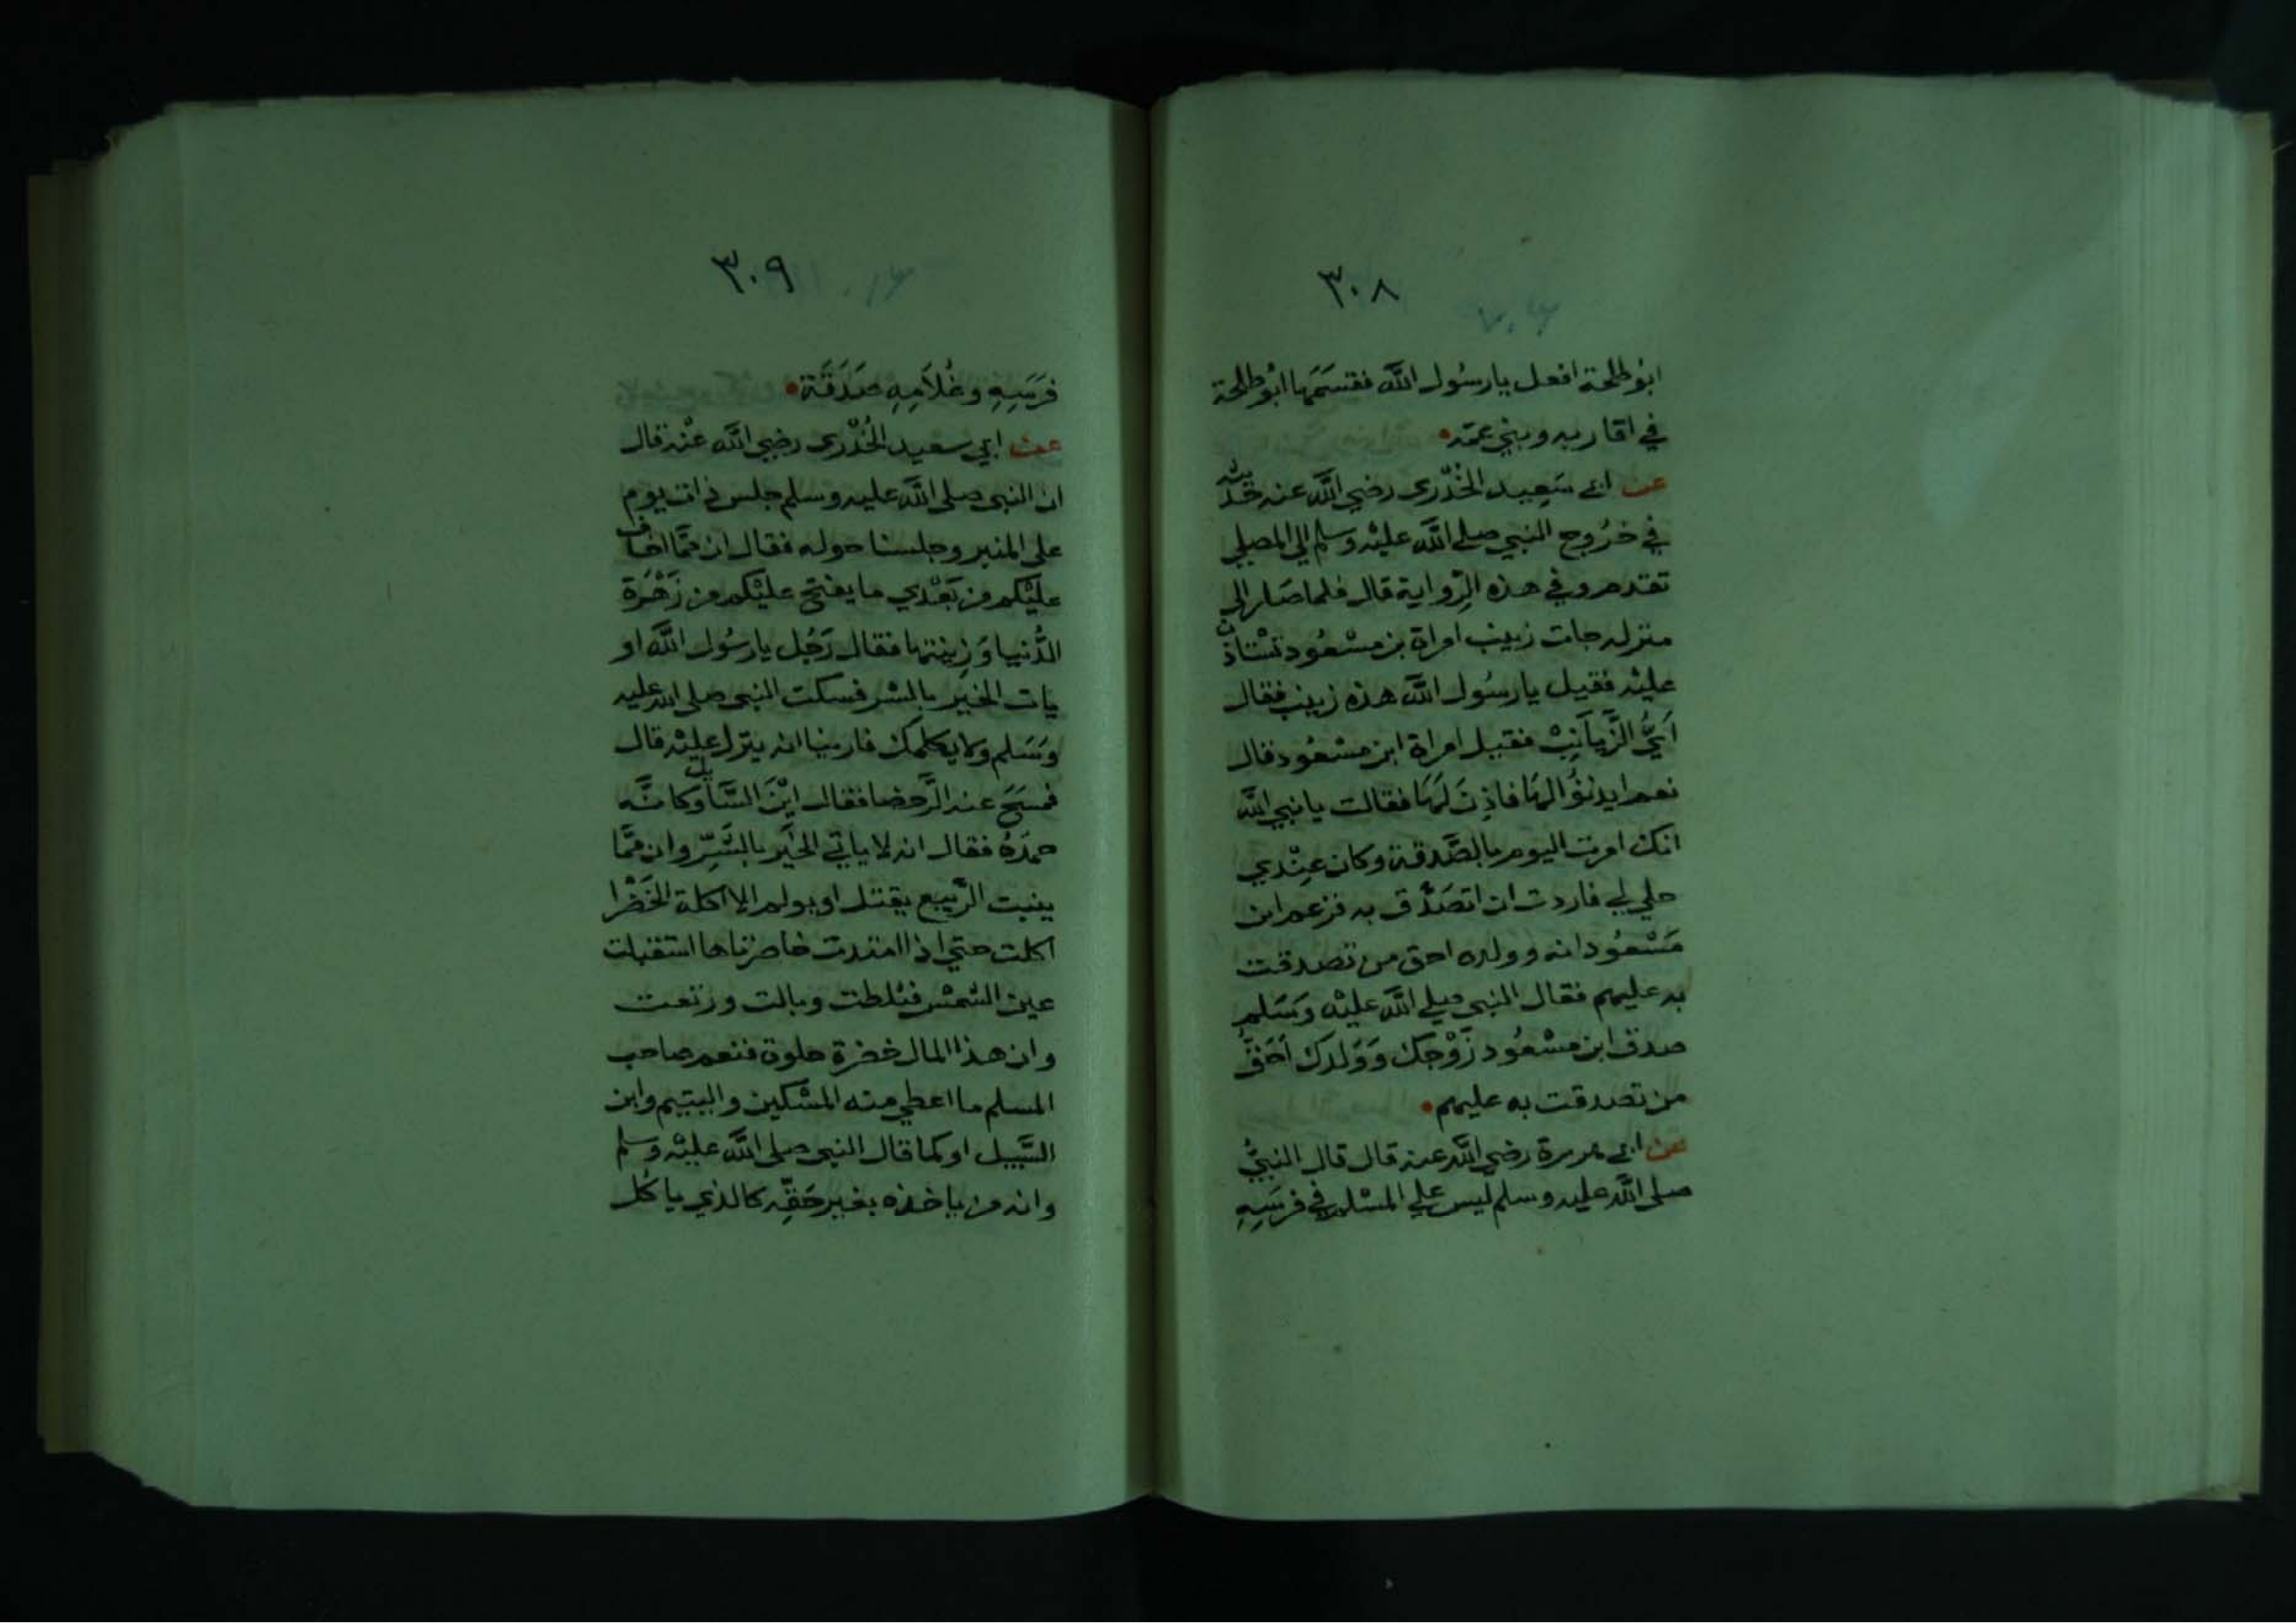 ٣٠٨
ابو طلحة افعل يا رسُول اللَّه فقسَمَها ابُو طلحة
في اقاربه وبني عمّه
عن ابي سَعِيد الخُدْري رضي اللَّه عنه حَديثه
في خرُوج النبي صلي اللَّه عليْه وسلم الي المصلي
تقدم وفي هذه الرِّواية قال فلما صَار الي
منزله جات زينب امراة بن مسْعُود تسْتاذن
عليْه فقيل يا رسُول اللَّه هذه زينب فقال
اَيُّ الزَّيَانِبْ فقيل امراة ابن مسْعُود قال
نعم ايذنوُا لهَا فاذِنَ لهَا فقالت يا نبي اللَّه
انك امرت اليوم بالصَّدقة وكان عِنْدي
حلي لي فاردت ان اتصَدَّق به فزعم ابن
مَسْعُود انه وولده احق من تصدقت
به عليهم فقال النبي صلي اللَّه عليْه وَسَلم
صدق ابن مسْعُود زَوْجك وَوَلدك اَحَقُّ
من تصدقت به عليهم
عن ابي هريرة رضي اللَّه عنه قال قال النبيُّ
صلى اللَّه عليه وسلم ليس علي المسْلم في فرسَهِ
٣٠٩
فرَسِهِ وغُلاَمِهِ صَدَقَة
عن ابي سعيد الخُدْري رضي اللَّه عنْه قال
ان النبي صلى اللَّه عليه وسلم جلس ذات يوم
على المنبر وجلسنا حوله فقال ان ممَّا اخاف
عليْكم من بَعْدي ما يفتح عليْكم من زَهْرَة
الدُّنيا وَزِينتها فقال رَجُل يا رسُول اللَّه او
يات الخير بالشر فسكت النبي صلى الله عليه
وَسَلم ولا يكلمك فارينا انه ينزل عليْه قال
فمسَحَ عنه الرَّحضا فقال ايْنَ السَّايل وكانَّه
حمدَهُ فقال انه لا ياتي الخيَر بالشَّرِّ وان ممَّا
ينبت الرَّبيع يقتل او يولم الا اكلة الخَضْرا
اكلت حتي اذا امتدت خاصرتاها استقبلت
عين الشمْس فثلطت وبالت ورتعت
وان هذا المال خضرة حلوة فنعم صاحب
المسلم ما اعطي منه المسْكين واليتيم وابن
السَّبيل او كما قال النبي صلى اللَّه عليْه وسلم
وانه من ياخذه بغير حَقِّه كالذي ياكُل